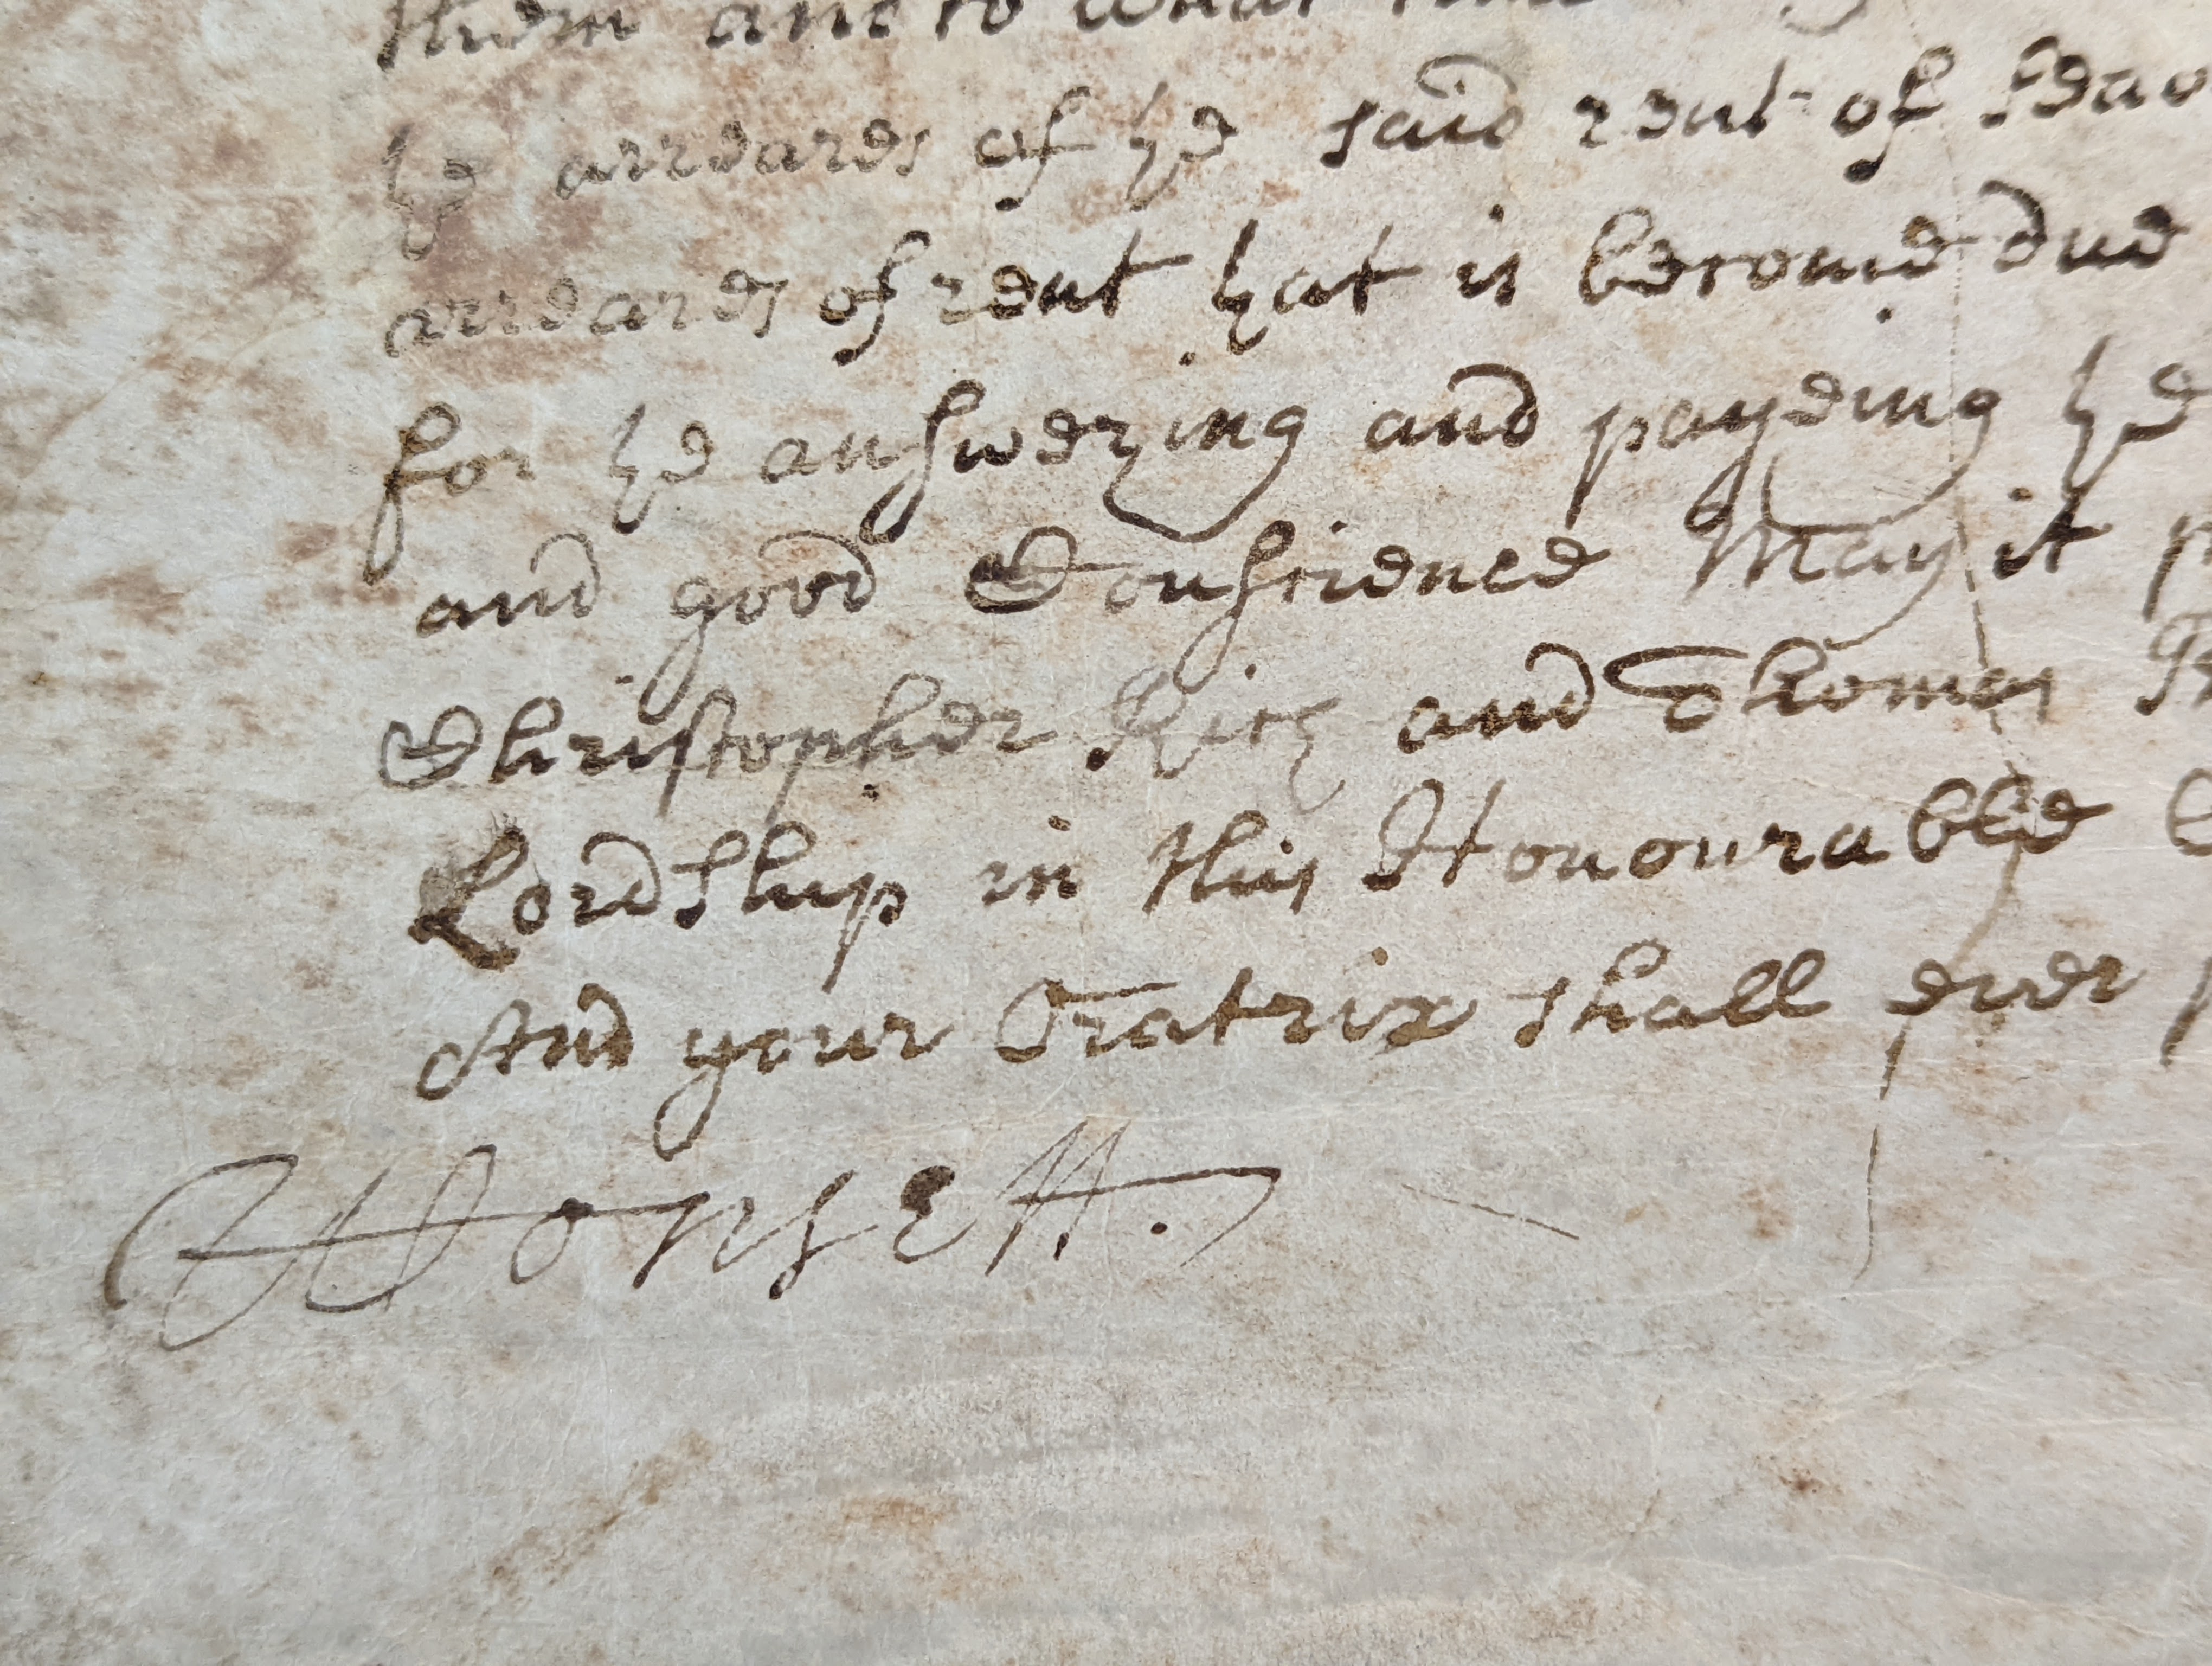 them and to what
ye arreares of ye said rent of
arreares of rent yat is become due
for ye answering and payeing ye
and good Conscience May it
Christopher and Thomas
Lordship in this Honourable
And your Oratrix shall ever
Wonsett.